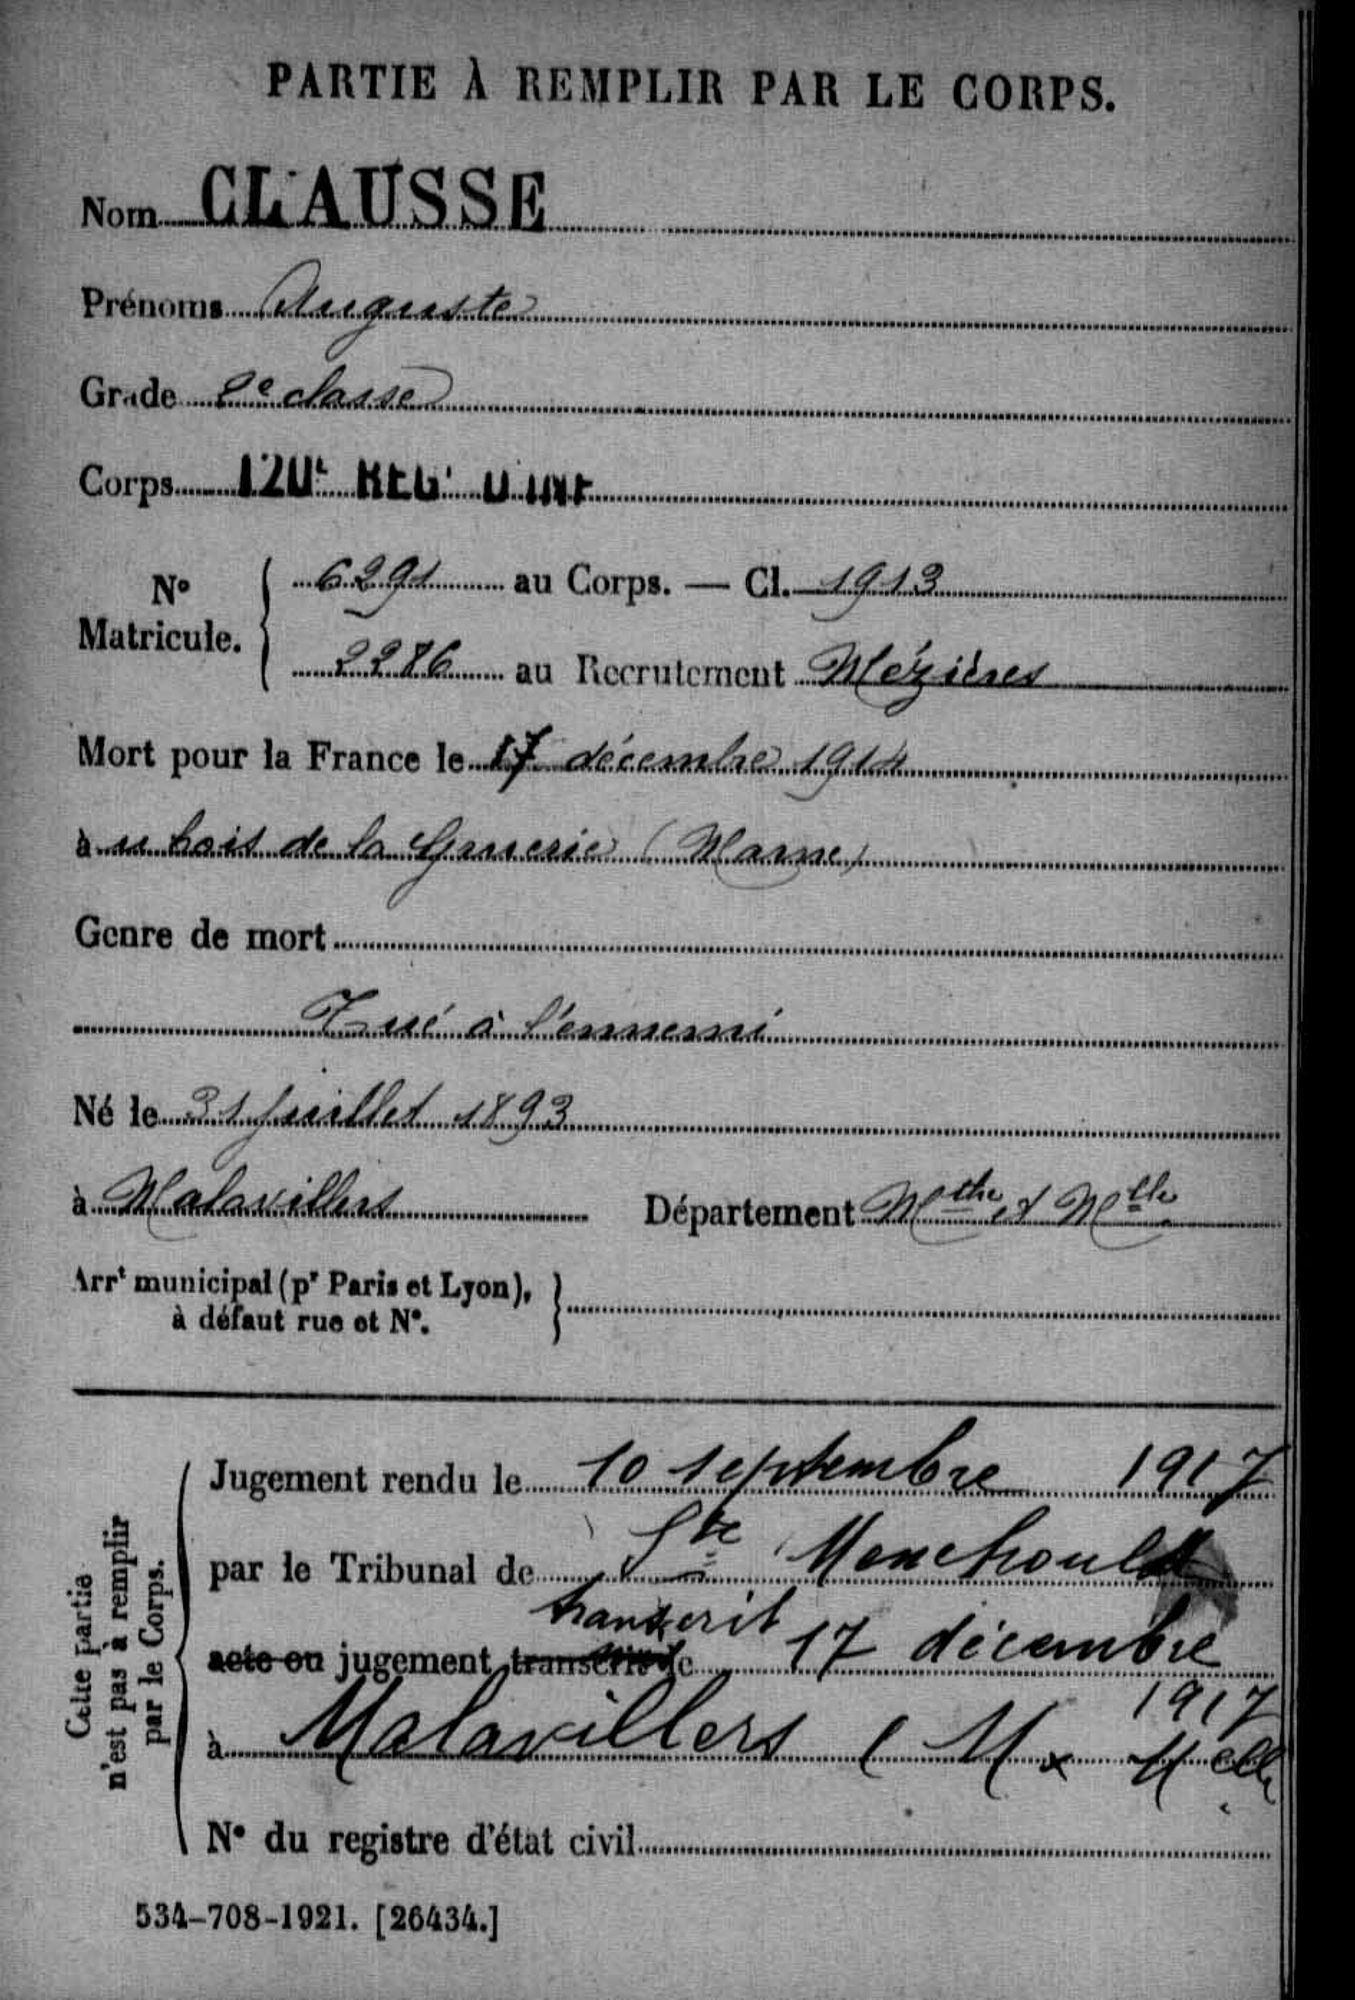 PARTIE À REMPLIR PAR LE CORPS.
Nom CLAUSSE
Prénoms Auguste
Grade 2e classe
Corps 120e REGt D'INF
No Matricule. 6291 au Corps. — Cl. 1913
2286 au Recrutement Mézières
Mort pour la France le 17 décembre 1914
à u bois de la Gruerie (Marne)
Genre de mort
Tué à l'ennemi
Né le 31 Juillet 1893
à Malavillers Département Mthe et Mlle
Arrt municipal (pr Paris et Lyon),
à défaut rue et No.
Cette partie
n'est pas à remplir
par le Corps.
Jugement rendu le 10 septembre 1917
par le Tribunal de Ste Menehould
transcrit
acte ou jugement transcrit le 17 décembre
1917
à Malavillers (M x Melle
No du registre d'état civil
534-708-1921. [26434.]